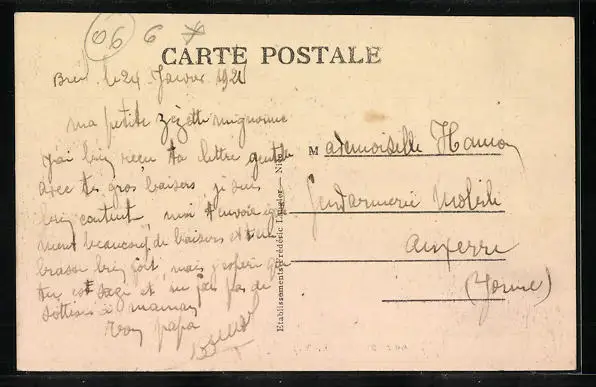 06 6
CARTE POSTALE
Breil le 24 Janvier 1921
ma petite zézette mignonne
J'ai bien reçu ta lettre gentille
avec tes gros baisers, je suis
bien content, moi t'envoie
beaucoup de baisers et
brasse bien fort, mais j'espère que
tu est sage et ne fais pas de
sottises à maman
Ton papa
Mademoiselle Hamon
Gendarmerie Mobile
Auxerre
(Yonne)
Etablissements Frédéric Laugier — Nice